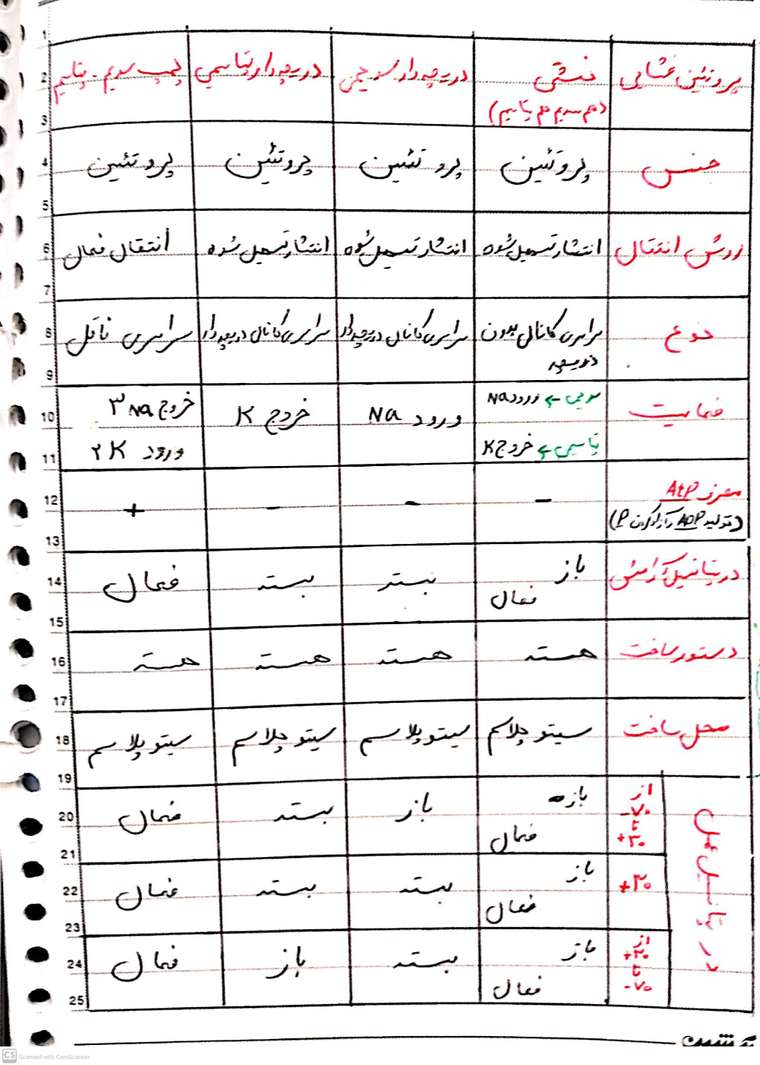 پروتئین غشایی | نشتی (هم سدیم هم پتاسیم) | دریچه دار سدیمی | دریچه دار پتاسیمی | پمپ سدیم - پتاسیم
جنس | پروتئین | پروتئین | پروتئین | پروتئین
روش انتقال | انتشار تسهیل شوه | انتشار تسهیل شوه | انتشار تسهیل شوه | انتقال فعال
نوع | سراسری کانالی بدون دریچه | سراسری کانالی دریچه دار | سراسری کانالی دریچه دار | سراسری ناقل
فعالیت | سدیمی ← ورود Na | ورود Na | خروج K | خروج Na ۳
پتاسیمی ← خروج K | ورود ۲K
مصرف ATP | - | - | - | +
(تولید ADP و آزاد کردن P)
در پتانسیل آرامش | باز فعال | بسته | بسته | فعال
دستور ساخت | هسته | هسته | هسته | هسته
محل ساخت | سیتوپلاسم | سیتوپلاسم | سیتوپلاسم | سیتوپلاسم
در پتانسیل عمل
از -۷۰ تا +۳۰ | باز فعال | باز | بسته | فعال
+۳۰ | باز فعال | بسته | بسته | فعال
از +۳۰ تا -۷۰ | باز فعال | بسته | باز | فعال
1
2
3
4
5
6
7
8
9
10
11
12
13
14
15
16
17
18
19
20
21
22
23
24
25
CS Scanned with CamScanner